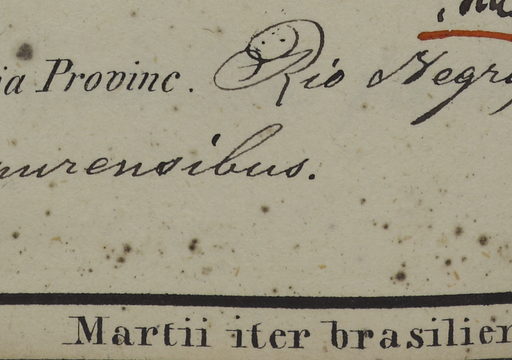 ia Provinc. Rio Negro
urensibus.
Martii iter brasilien